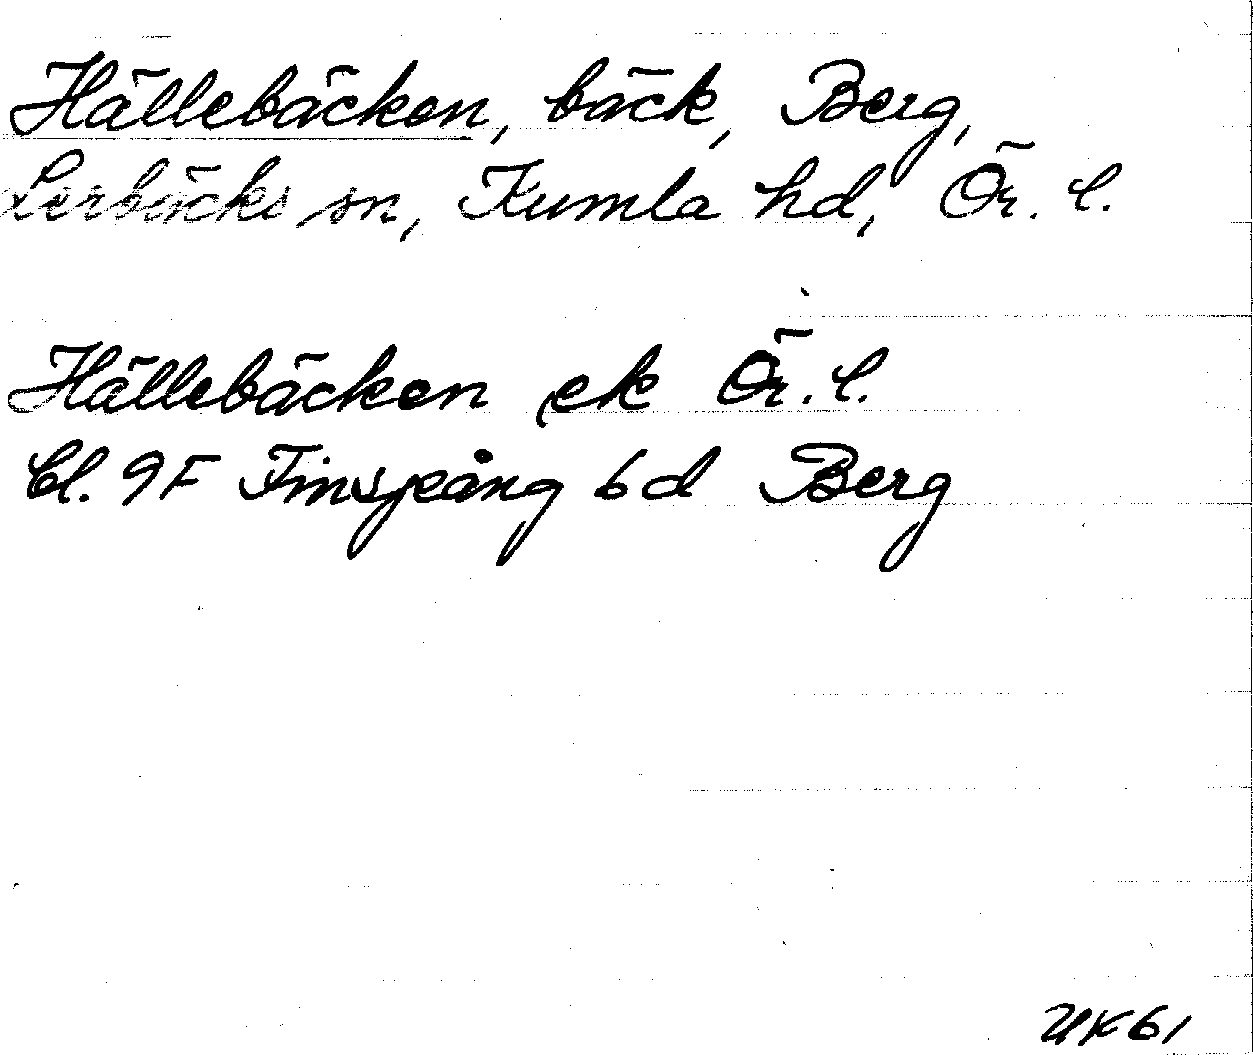 Hällebäcken, bäck, Berg,
Lerbäcks sn, Kumla hd, Ör. l.
Hällebäcken ek Ör. l.
bl. 9F Finspång 6d Berg
UK61